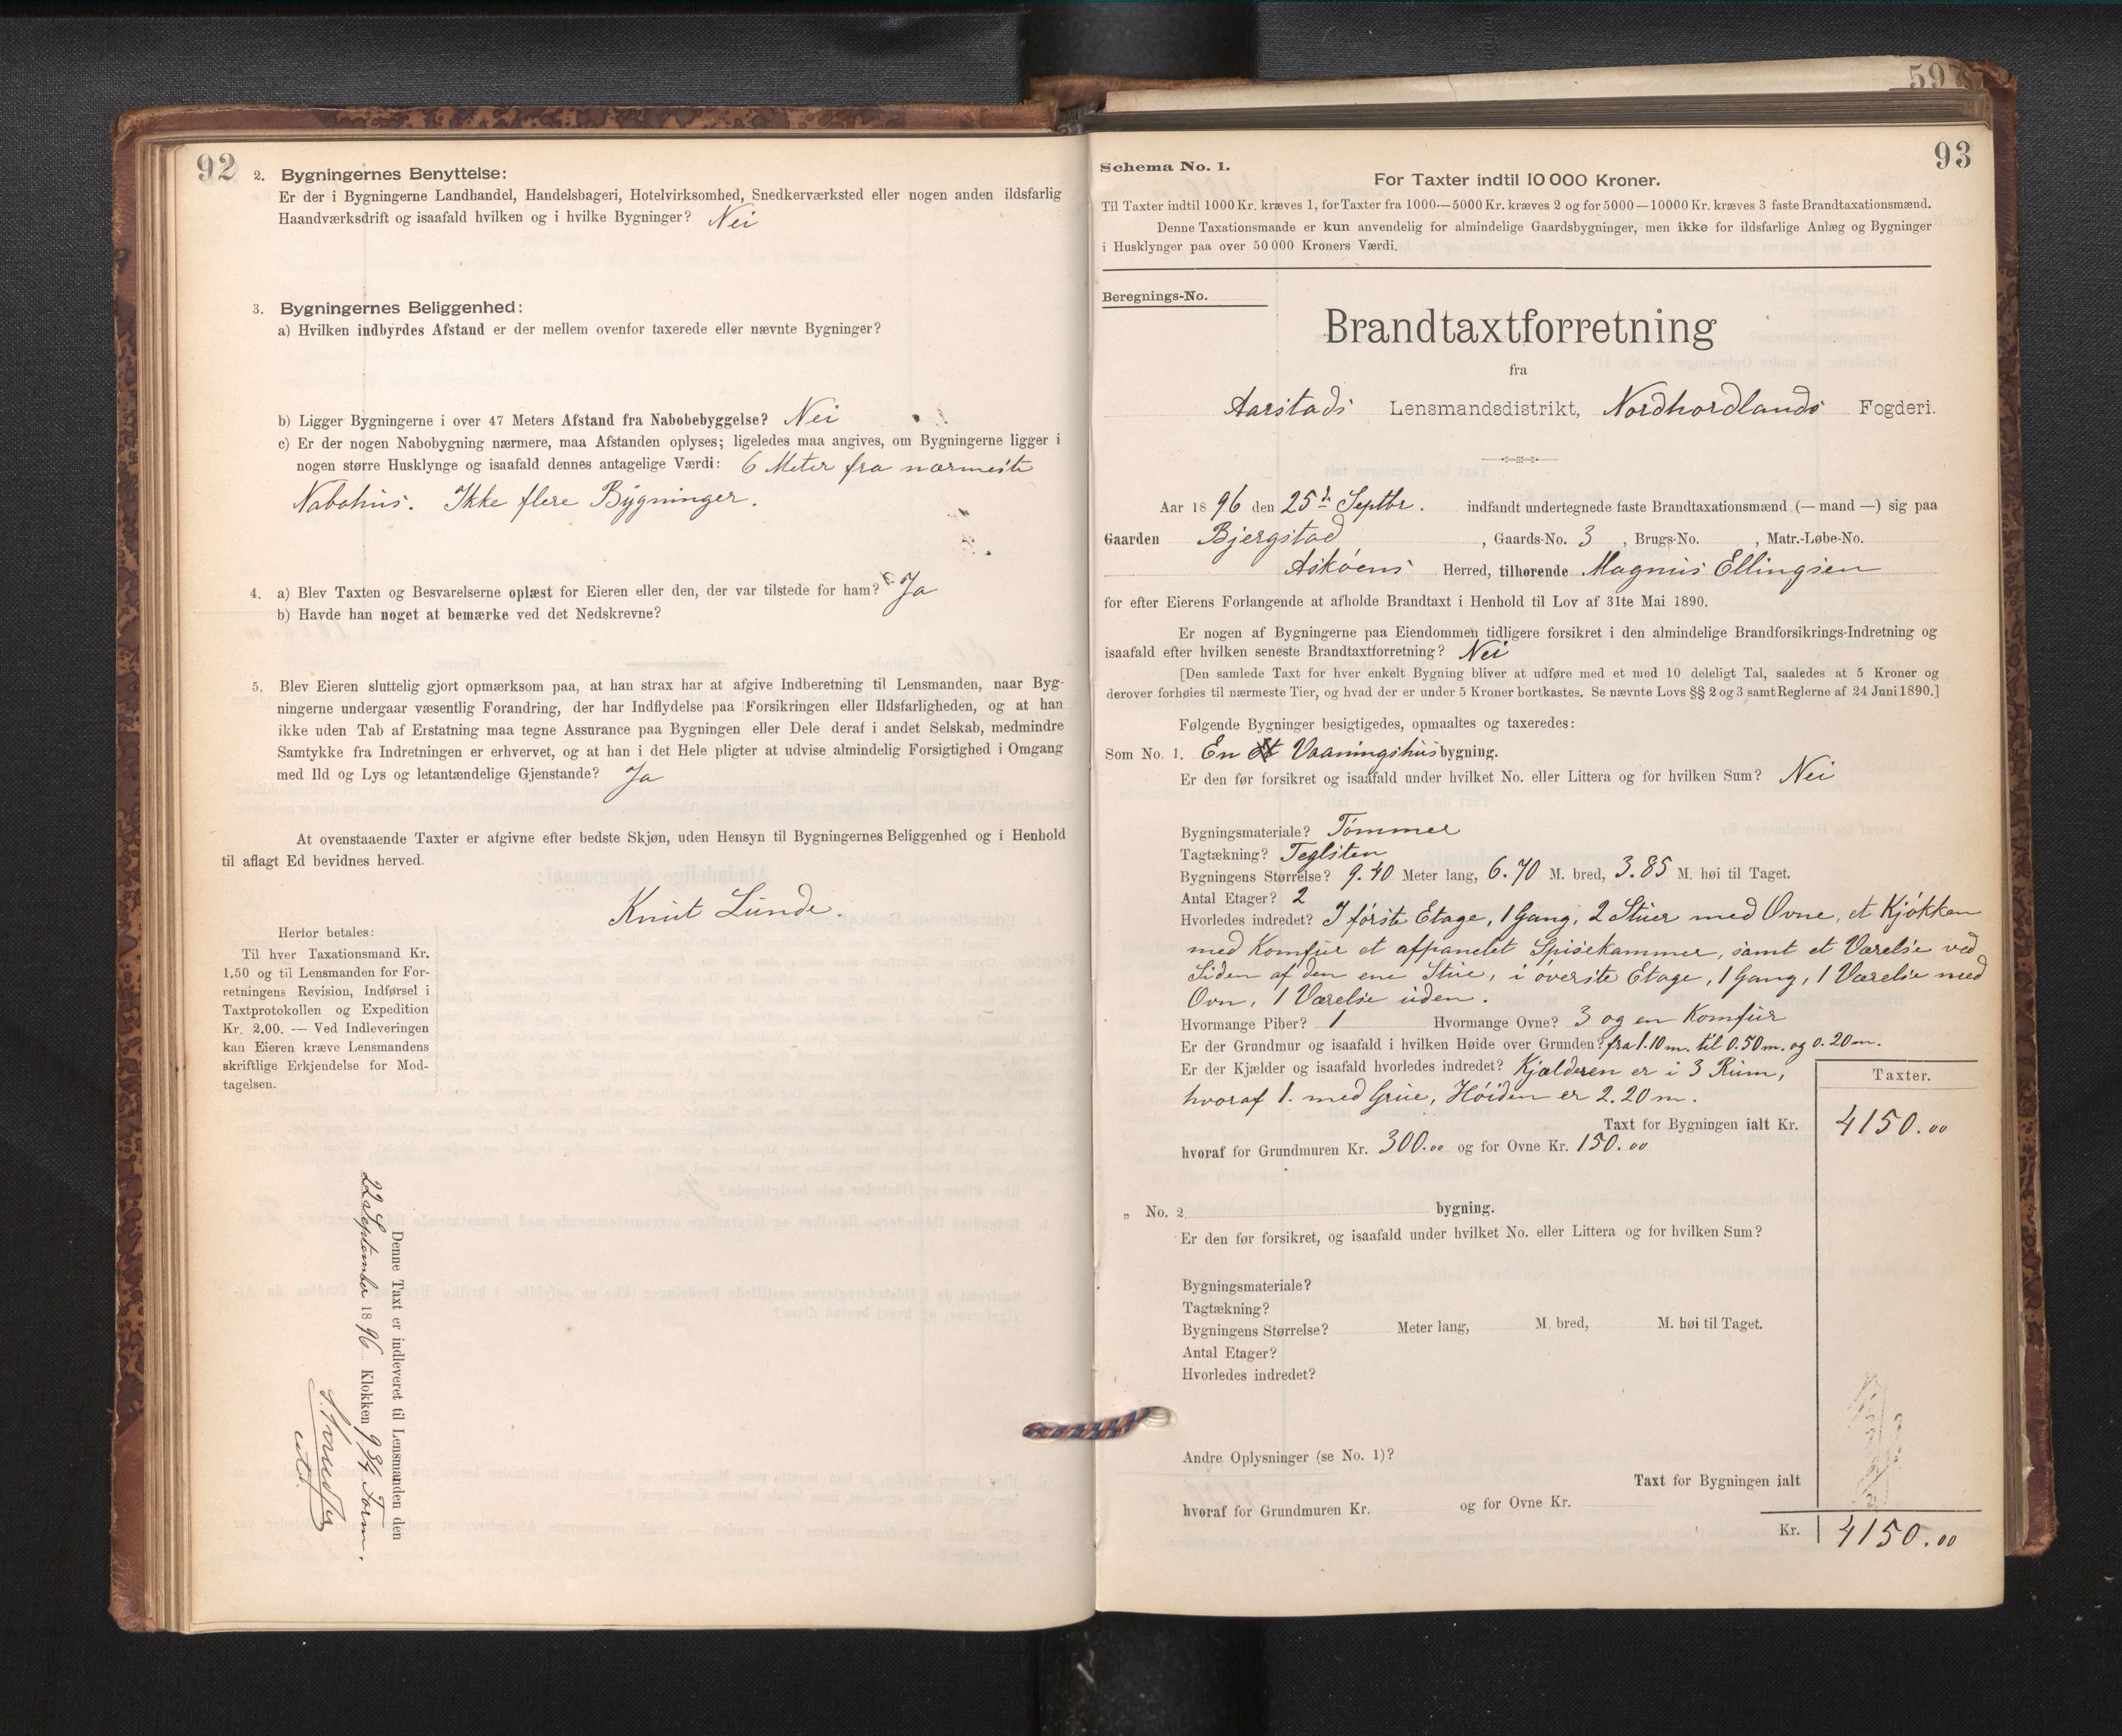 92
2. Bygningernes Benyttelse:
Er der i Bygningerne Landhandel, Handelsbageri, Hotelvirksomhed, Snedkerværksted eller nogen anden ildsfarlig
Haandværksdrift og isaafald hvilken og i hvilke Bygninger? Nei
3. Bygningernes Beliggenhed:
a) Hvilken indbyrdes Afstand er der mellem ovenfor taxerede eller nævnte Bygninger?
b) Ligger Bygningerne i over 47 Meters Afstand fra Nabobebyggelse? Nei
c) Er der nogen Nabobygning nærmere, maa Afstanden oplyses; ligeledes maa angives, om Bygningerne ligger i
nogen større Husklynge og isaafald dennes antagelige Værdi: 6 Meter fra nærmeste
Nabohus. Ikke flere Bygninger.
4. a) Blev Taxten og Besvarelserne oplæst for Eieren eller den, der var tilstede for ham? Ja
b) Havde han noget at bemærke ved det Nedskrevne?
5. Blev Eieren sluttelig gjort opmærksom paa, at han strax har at afgive Indberetning til Lensmanden, naar Byg-
ningerne undergaar væsentlig Forandring, der har Indflydelse paa Forsikringen eller Ildsfarligheden, og at han
ikke uden Tab af Erstatning maa tegne Assurance paa Bygningen eller Dele deraf i andet Selskab, medmindre
Samtykke fra Indretningen er erhvervet, og at han i det Hele pligter at udvise almindelig Forsigtighed i Omgang
med Ild og Lys og letantændelige Gjenstande? Ja
At ovenstaaende Taxter er afgivne efter bedste Skjøn, uden Hensyn til Bygningernes Beliggenhed og i Henhold
til aflagt Ed bevidnes herved.
Knut Lunde.
Herfor betales:
Til hver Taxationsmand Kr.
1.50 og til Lensmanden for For-
retningens Revision, Indførsel i
Taxtprotokollen og Expedition
Kr. 2.00. — Ved Indleveringen
kan Eieren kræve Lensmandens
skriftlige Erkjendelse for Mod-
tagelsen.
Denne Taxt er indleveret til Lensmanden den
22 September 1896 Klokken 9 3/4 Form.
597
93
Schema No. 1.
For Taxter indtil 10 000 Kroner.
Til Taxter indtil 1000 Kr. kræves 1, for Taxter fra 1000—5000 Kr. kræves 2 og for 5000—10000 Kr. kræves 3 faste Brandtaxationsmænd.
Denne Taxationsmaade er kun anvendelig for almindelige Gaardsbygninger, men ikke for ildsfarlige Anlæg og Bygninger
i Husklynger paa over 50 000 Kroners Værdi.
Beregnings-No.
Brandtaxtforretning
fra
Aarstads Lensmandsdistrikt, Nordhordlands Fogderi.
Aar 1896 den 25de Septbr. indfandt undertegnede faste Brandtaxationsmænd (— mand —) sig paa
Gaarden Bjergstad, Gaards-No. 3, Brugs-No. , Matr.-Løbe-No.
Askøens Herred, tilhørende Magnus Ellingsen
for efter Eierens Forlangende at afholde Brandtaxt i Henhold til Lov af 31te Mai 1890.
Er nogen af Bygningerne paa Eiendommen tidligere forsikret i den almindelige Brandforsikrings-Indretning og
isaafald efter hvilken seneste Brandtaxtforretning? Nei
[Den samlede Taxt for hver enkelt Bygning bliver at udføre med et med 10 deleligt Tal, saaledes at 5 Kroner og
derover forhøies til nærmeste Tier, og hvad der er under 5 Kroner bortkastes. Se nævnte Lovs §§ 2 og 3 samt Reglerne af 24 Juni 1890.]
Følgende Bygninger besigtigedes, opmaaltes og taxeredes:
Som No. 1. En Vaaningshusbygning.
Er den før forsikret og isaafald under hvilket No. eller Littera og for hvilken Sum? Nei
Bygningsmateriale? Tømmer
Tagtækning? Teglsten
Bygningens Størrelse? 9.40 Meter lang, 6.70 M. bred, 3.85 M. høi til Taget.
Antal Etager? 2
Hvorledes indredet? I første Etage, 1 Gang, 2 Stuer med Ovne, et Kjøkken
med Komfur et afpanelet Spisekammer, samt et Værelse ved
Siden af den ene Stue, i øverste Etage, 1 Gang, 1 Værelse med
Ovn, 1 Værelse uden.
Hvormange Piber? 1 Hvormange Ovne? 3 og en Komfur
Er der Grundmur og isaafald i hvilken Høide over Grunden? fra 1.10 m. til 0.50 m. og 0.20 m.
Er der Kjælder og isaafald hvorledes indredet? Kjælderen er i 3 Rum,
hvoraf 1. med Grue, Høiden er 2.20 m.
Taxter.
Taxt for Bygningen ialt Kr. 4150.00
hvoraf for Grundmuren Kr. 300.00 og for Ovne Kr. 150.00
„ No. 2 bygning.
Er den før forsikret, og isaafald under hvilket No. eller Littera og for hvilken Sum?
Bygningsmateriale?
Tagtækning?
Bygningens Størrelse? Meter lang, M. bred, M. høi til Taget.
Antal Etager?
Hvorledes indredet?
Andre Oplysninger (se No. 1)?
Taxt for Bygningen ialt
hvoraf for Grundmuren Kr. og for Ovne Kr.
Kr. 4150.00